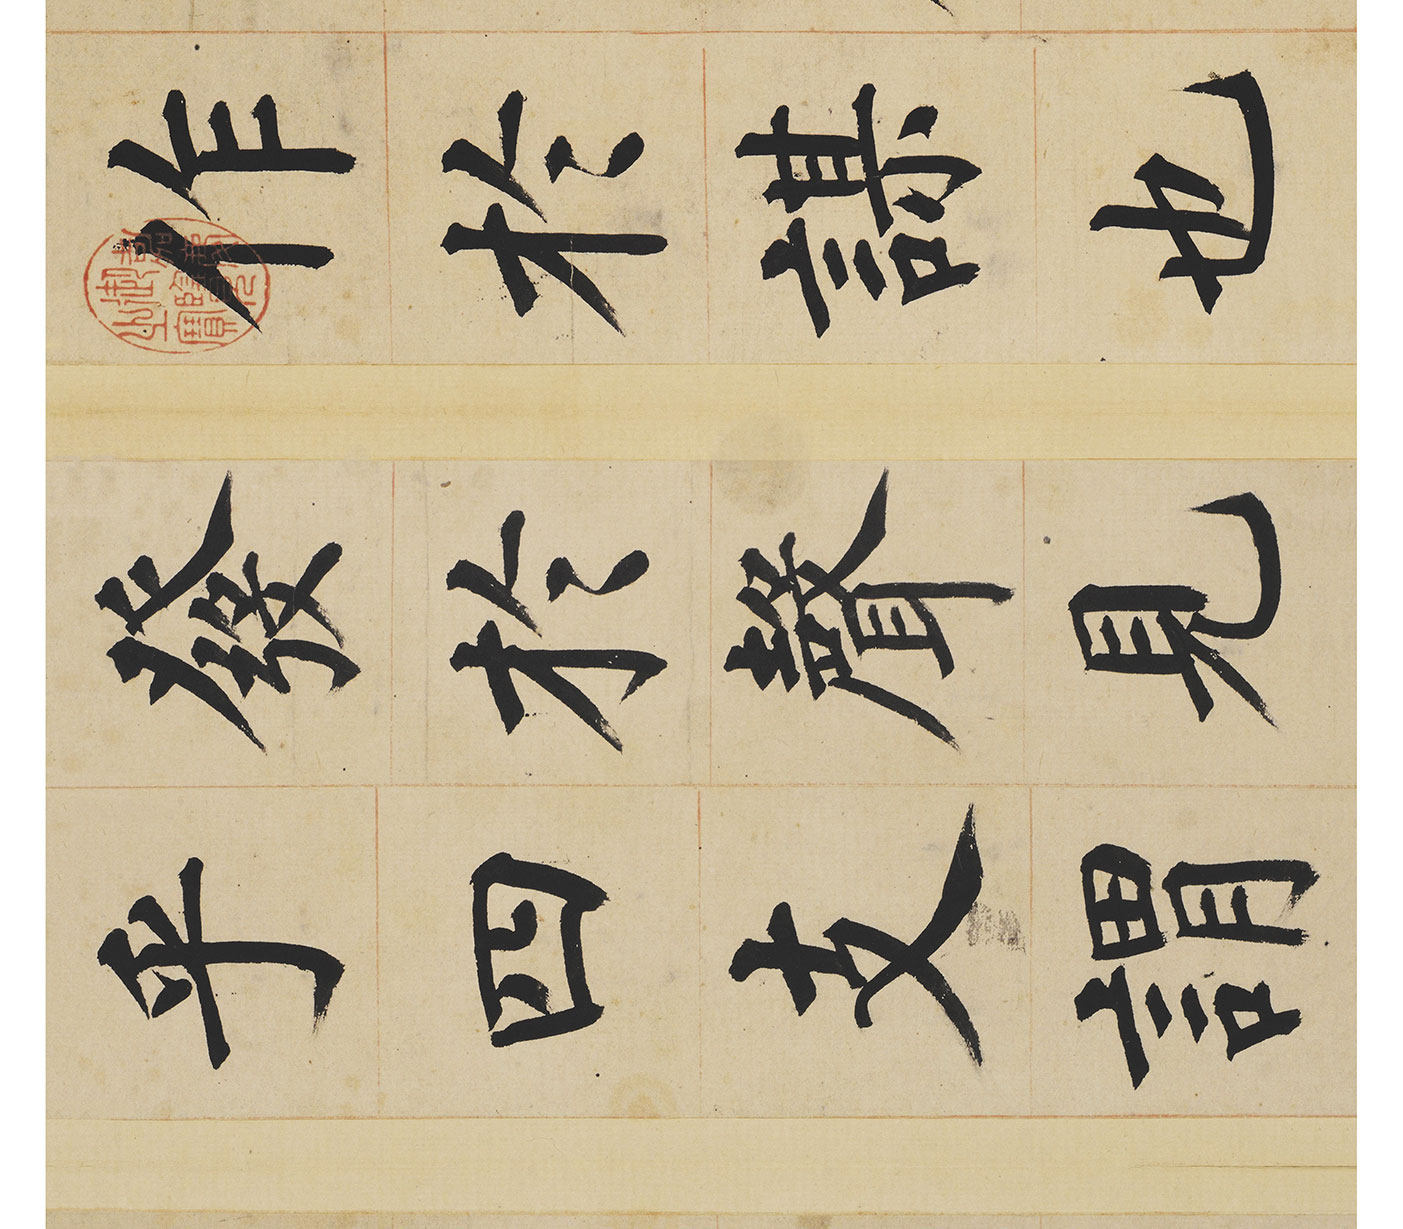 作於謀也
發於聲見
乎四支謂